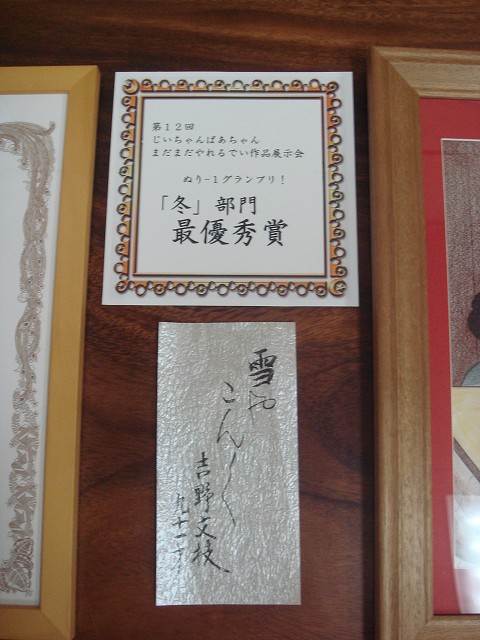 第１２回
じいちゃんばあちゃん
まだまだやれるでい作品展示会
ぬり-１グランプリ！
「冬」部門
最優秀賞
雪や
こん〱
吉野文枝
九十一才